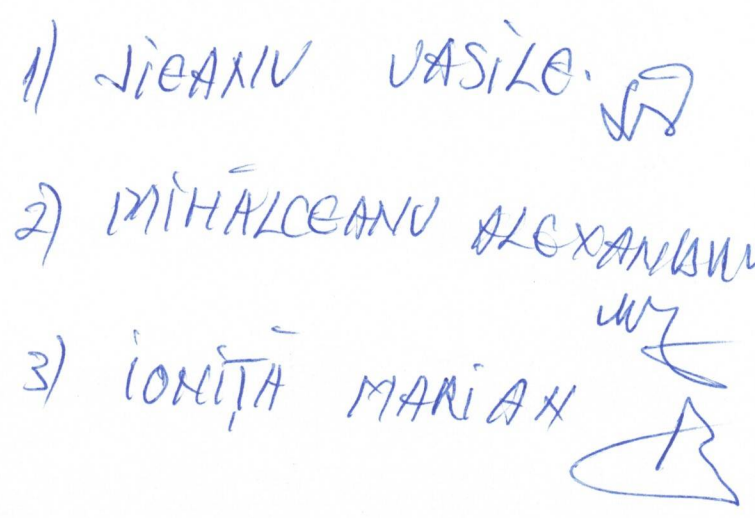 1) JiEANU VASiLE.
2) MiHĂLCEANU ALEXANDRU
3) iONiȚĂ MARiAN